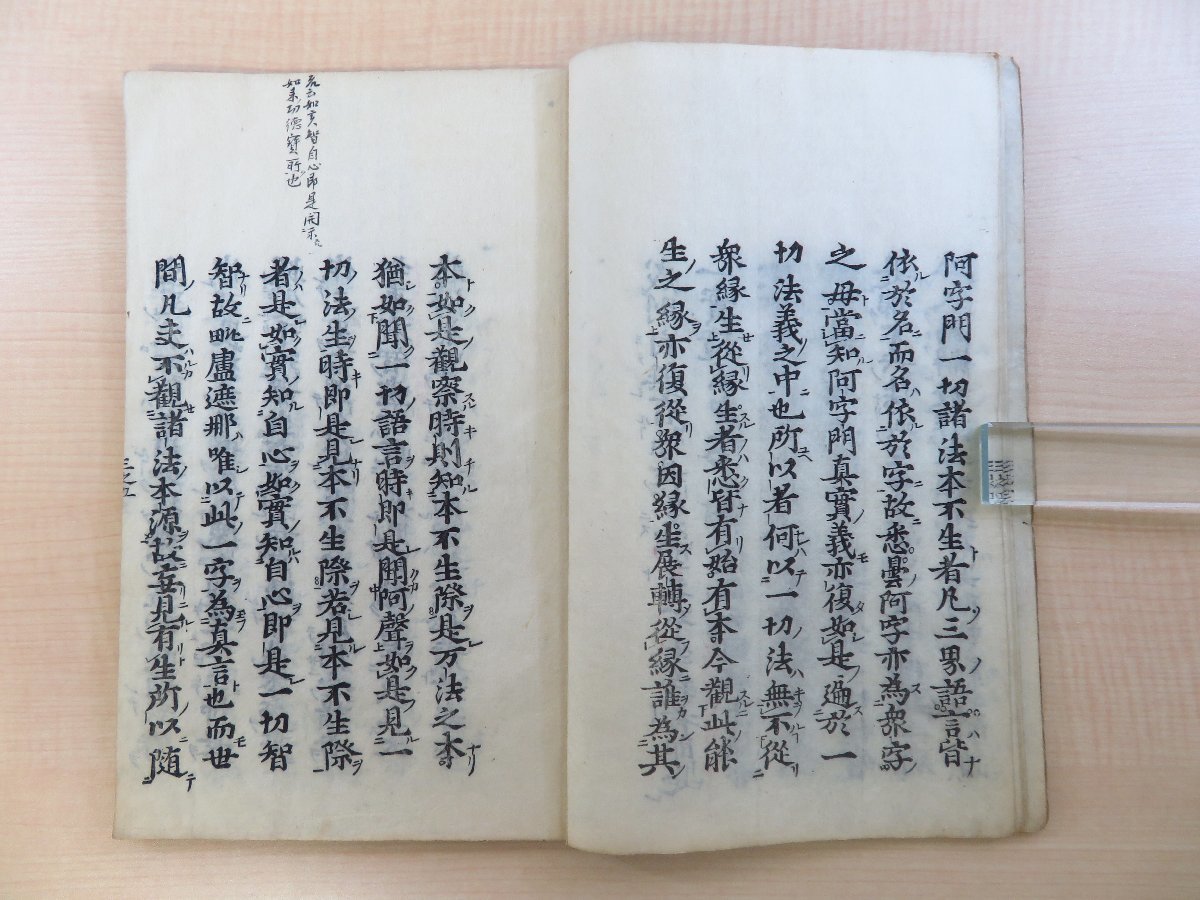 阿字門一切諸法本不生者凡三界語言皆
依於名而名依於字故悉曇阿字亦為衆字
之母當知阿字門真實義亦復如是遍於一
切法義之中也所以者何以一切法無不從
衆縁生從縁生者悉皆有始有本今觀此能
生之縁亦復從衆因縁生展轉從縁誰為其
本如是觀察時則知本不生際是万法之本
猶如聞一切語言時即是聞阿聲如是見一
切法生時即是見本不生際若見本不生際
者是如實知自心如實知自心即是一切智
智故毗盧遮那唯以此一字為真言也而世
間凡夫不觀諸法本源故妄見有生所以随
如實智自心即是開示
如来功德寶所也